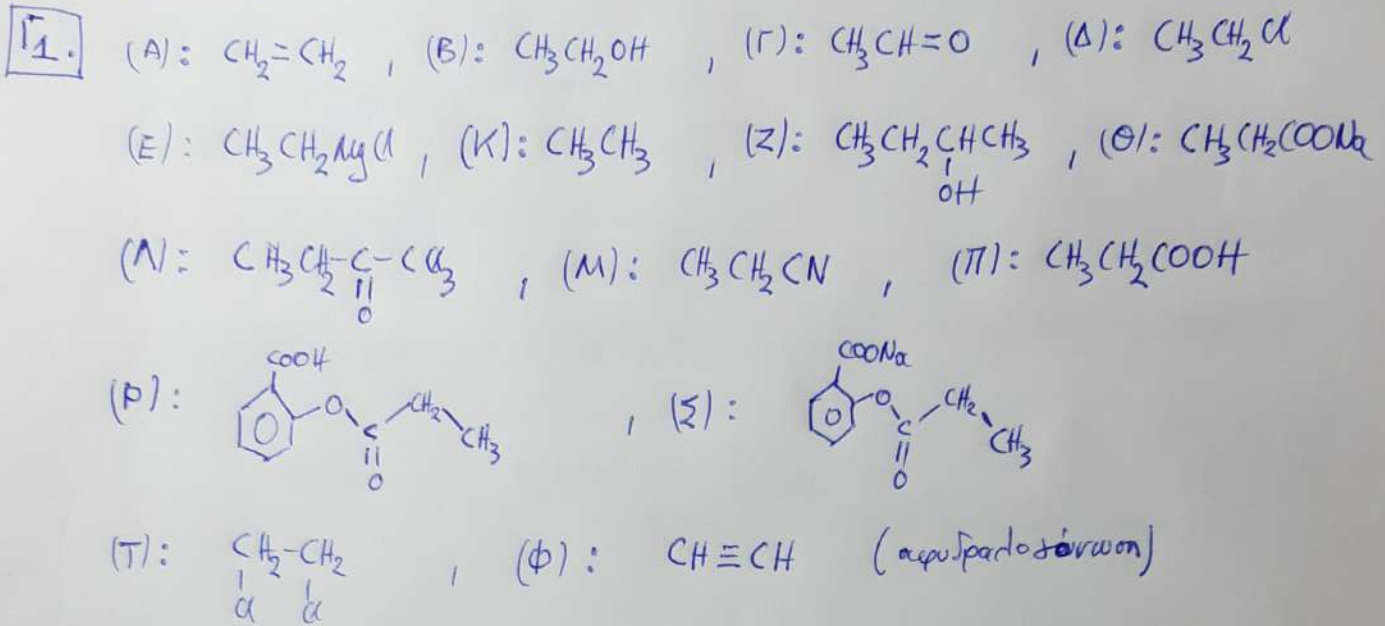 Γ1. (Α): CH₂=CH₂ , (Β): CH₃CH₂OH , (Γ): CH₃CH=O , (Δ): CH₃CH₂Cl
(Ε): CH₃CH₂MgCl , (Κ): CH₃CH₃ , (Ζ): CH₃CH₂CHCH₃ , (Θ): CH₃CH₂COONa
OH
(Λ): CH₃CH₂-C-CCl₃ , (Μ): CH₃CH₂CN , (Π): CH₃CH₂COOH
O
COOH COONa
(Ρ): O C CH₂ CH₃ , (Σ): O C CH₂ CH₃
O O
(Τ): CH₂-CH₂ , (Φ): CH≡CH (αφυδραλογόνωση)
Cl Cl